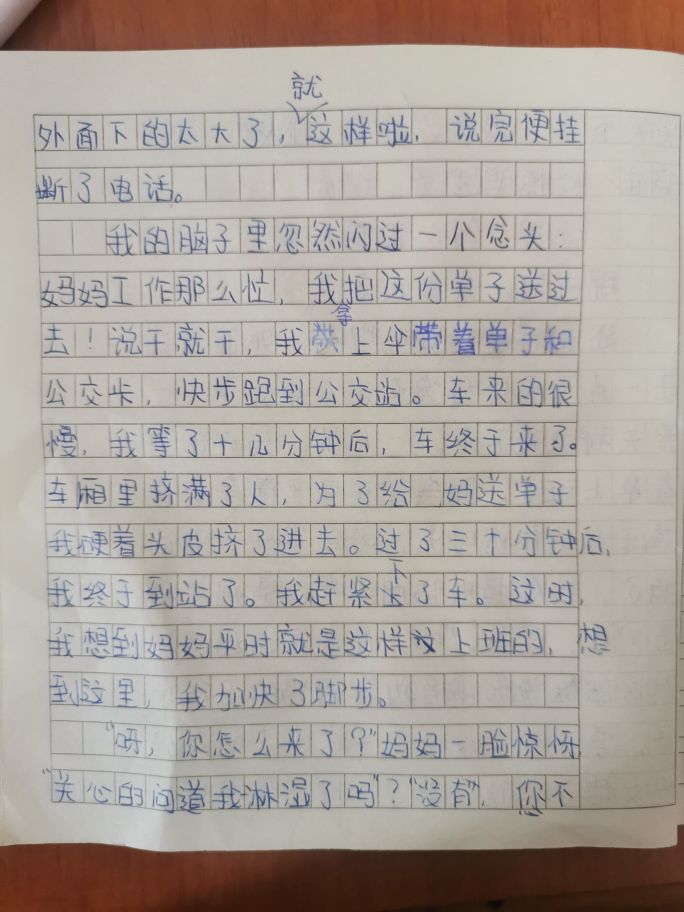 外面下的太大了，就这样啦，说完便挂
断了电话。
我的脑子里忽然闪过一个念头：
妈妈工作那么忙，我把这份单子送过
去！说干就干，我拿上伞带着单子和
公交卡，快步跑到公交站。车来的很
慢，我等了十几分钟后，车终于来了。
车厢里挤满了人，为了给 妈送单子
我硬着头皮挤了进去。过了三十分钟后，
我终于到站了。我赶紧下了车。这时，
我想到妈妈平时就是这样上班的，想
到这里，我加快了脚步。
“呀，你怎么来了？”妈妈一脸惊讶
“关心的问道我淋湿了吗”？“没有”，您不